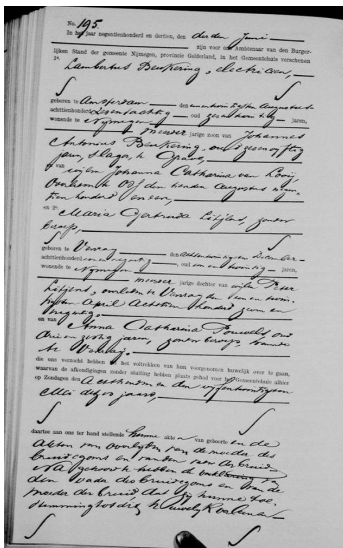 No. 195.
In het jaar negentienhonderd en dertien, den derden Juni
zijn voor ons Ambtenaar van den Burger-
lijken Stand der gemeente Nijmegen, provincie Gelderland, in het Gemeentehuis verschenen
1e.
Lambertus Beukering, electricien,
geboren te Amsterdam den een en twintigsten Augustus
achttienhonderd zes en tachtig oud zes en twintig jaren,
wonende te Nijmegen
meerder jarige zoon van Johannes
Antonius Beukering, oud zes en vijftig
jaren, slager, te Grave,
en van wijlen Johanna Catharina van
overleden te Oss den tienden Augustus negen
tien honderd en een,
en 2e.
Maria Gertruda Litjens, zonder
beroep,
geboren te Venray den achttienden December
achttienhonderd een en negentig oud een en twintig jaren,
wonende te Nijmegen
meerder jarige dochter van wijlen Peter
Litjens, overleden te Venray den een en twin-
tigsten April achttien honderd zeven en
negentig,
en van Anna Catharina Pouwels, oud
drie en zestig jaren, zonder beroep, wonende
te Venray,
die ons verzocht hebben het voltrekken van hun voorgenomen huwelijk over te gaan,
waarvan de afkondigingen zonder stuiting hebben plaats gehad voor het Gemeentehuis alhier
op Zondagen den achttienden en den vijf en twintigsten
Mei dezes jaars,
daartoe aan ons ter hand stellende hunne akten van geboorte en de
akten van overlijden van de moeder des
bruidegoms en van den vader der bruid
Na gehoord te hebben de verklaring van
den vader des bruidegoms en van de
moeder der bruid dat zij hunne toe-
stemming tot dit huwelijk verleenen